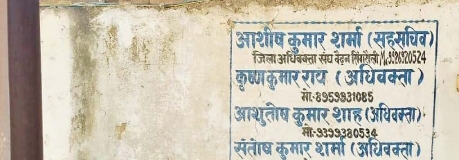 आशीष कुमार शर्मा (सहसचिव)
जिला अधिवक्ता संघ बैढ़न सिंगरौली M.
कृष्णकुमार राय (अधिवक्ता)
मो.-8959931085
आशुतोष कुमार शाह (अधिवक्ता)
मो.-9399380534
संतोष कुमार शर्मा (अधिवक्ता)